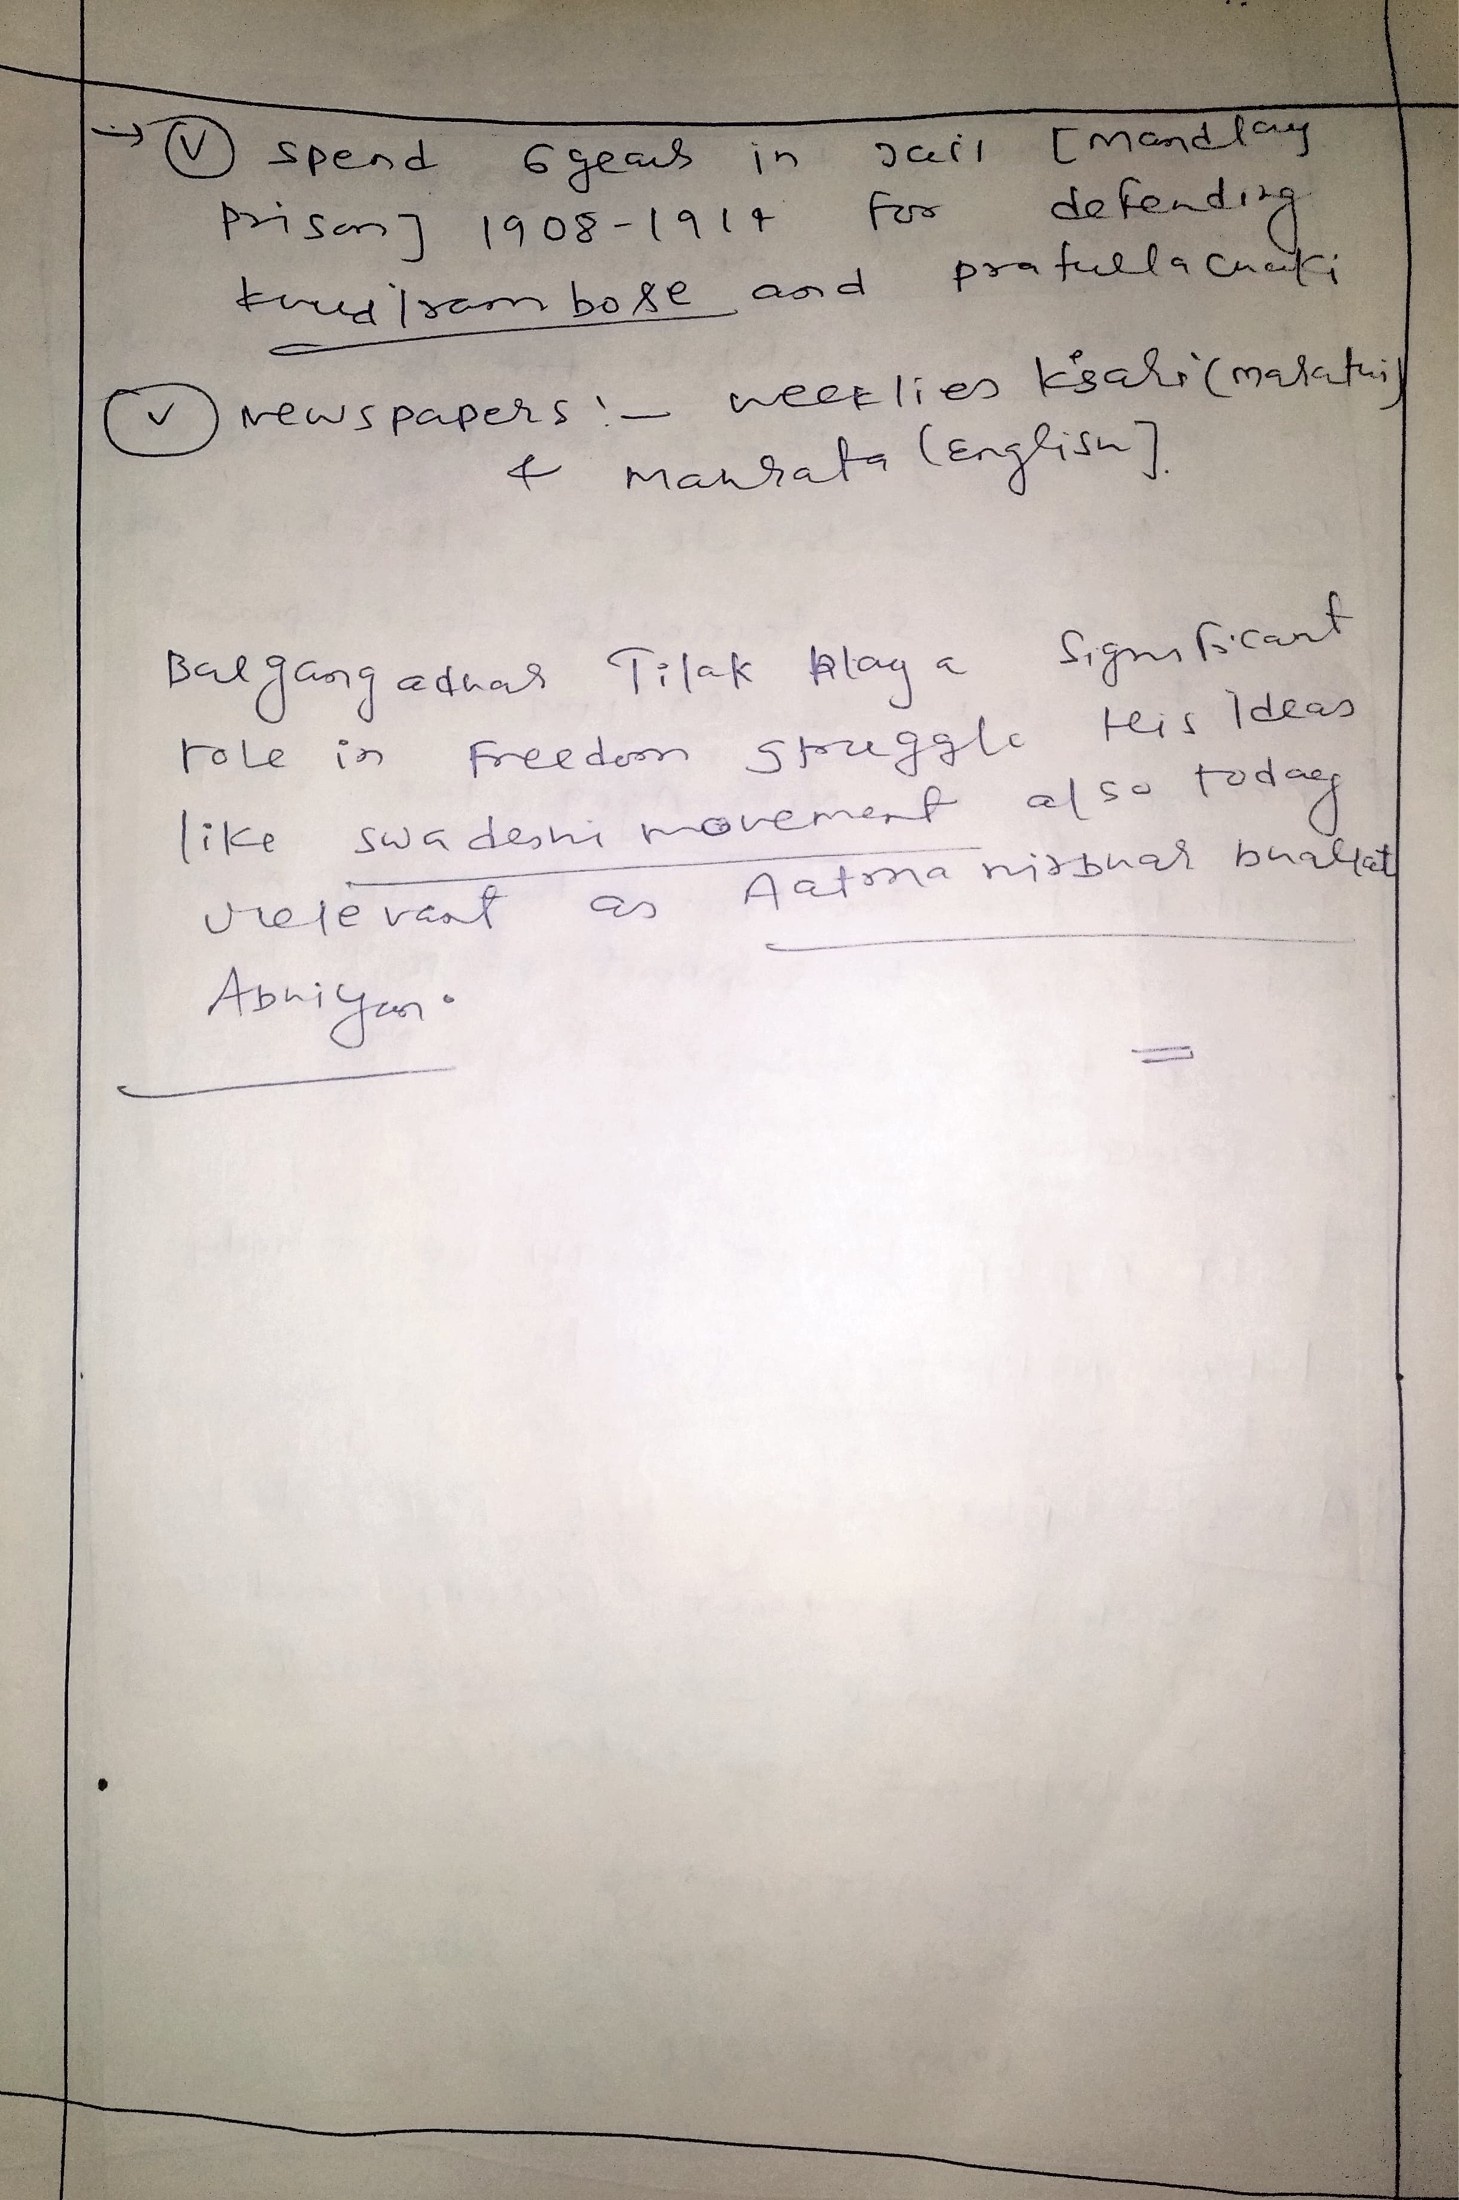 → (V) spend 6 years in Jail [Mandlay
Prison] 1908-1914 for defending
khudiram bose and prafulla chaki
(V) Newspapers:- weeklies Kesari (marathi)
& Mahrata (English].
Bal gangadhar Tilak play a significant
role in Freedom struggle His Ideas
like swadeshi movement also today
relevant as Aatma nirbhar bharat
Abhiyan.
=